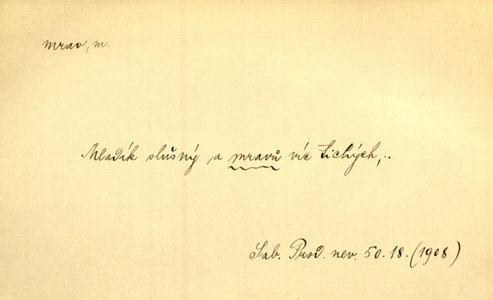 mrav, m.
Mladík slušný a mravů víc tichých,..
Sab. Prod. nev. 50.18. (1908)